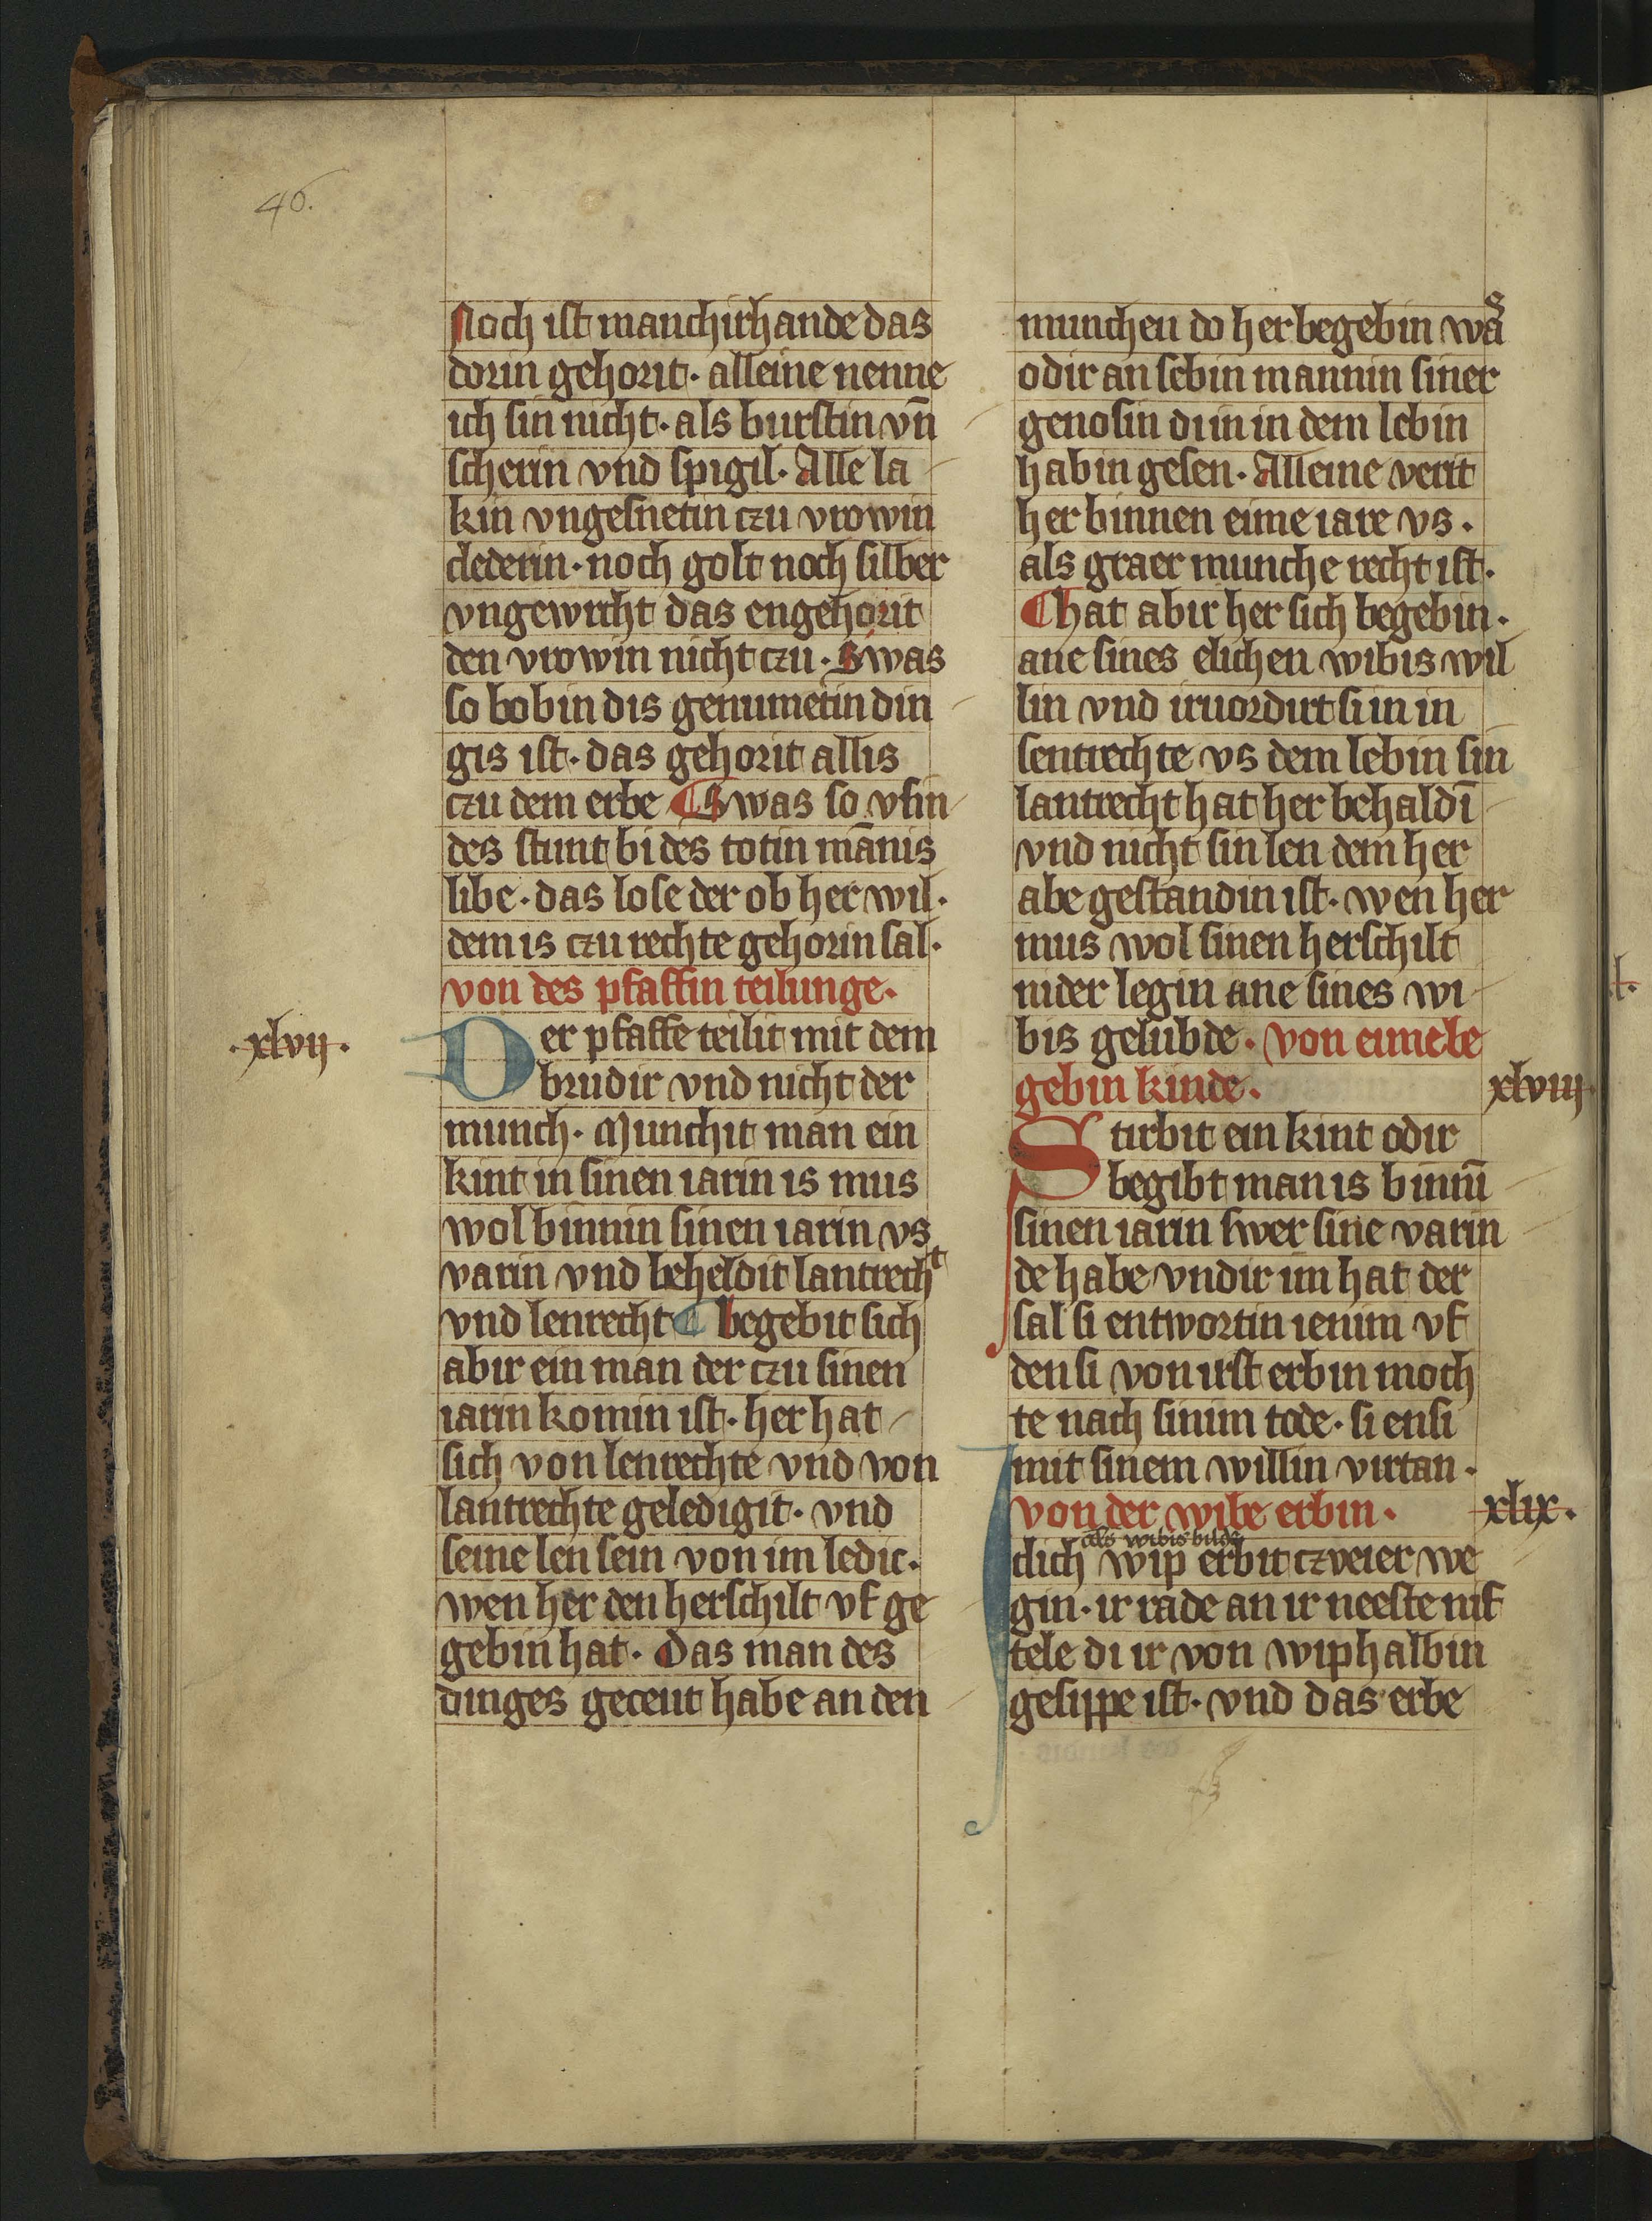 40.
Noch ist manchirhande das
dorin gehorit. alleine nenne
ich sin nicht. als burstin vn̄
scherin vnd spigil. Alle la
kin vngesnetin czu vrowin
clederin. noch golt noch silber
vngewrcht das engehorit
den vrowin nicht czu. Swas
so bobin dis genumetin din
gis ist. das gehorit allis
czu dem erbe ¶ Swas so vsin
des stunt bi des totin mānis
libe. das lose der ob her wil.
dem is czu rechte gehorin sal.
von des pfaffin teilunge.
.xlvij.
Der pfaffe teilit mit dem
brudir vnd nicht der
munch. Munchit man ein
kint in sinen iarin is mus
wol binnin sinen iarin vs
varin vnd beheldit lantrecht
vnd lenrecht ¶ begebit sich
abir ein man der czu sinen
iarin komin ist. her hat
sich von lenrechte vnd von
lantrechte geledigit. vnd
seine len sein von im ledic.
wen her den herschilt vf ge
gebin hat. Das man des
dinges geceut habe an den
munchen do her begebin was
odir an sebin mannin siner
genosin di in in dem lebin
habin gesen. Alleine verit
her binnen eime iare vs.
als graer munche recht ist.
¶ hat abir her sich begebin.
ane sines elichen wibis wil
lin vnd iruordirt si in in
sentrechte vs dem lebin sin
lantrecht hat her behaldī
vnd nicht sin len dem her
abe gestandin ist. wen her
mus wol sinen herschilt
nider legin ane sines wi
bis gelubde. von eime be
gebin kinde.
xlviij
Stirbit ein kint odir
begibt man is binnī
sinen iarin swer sine varin
de habe vndir im hat der
sal si entwortin ienim vf
den si von irst erbin moch
te nach sinim tode. si ensi
mit sinem willin virtan.
von der wibe erbin.
xlix.
als wibis bilde
Iclich wip erbit czveier we
gin. ir rade an ir neeste nif
tele di ir von wiphalbin
gesippe ist. vnd das erbe
l.